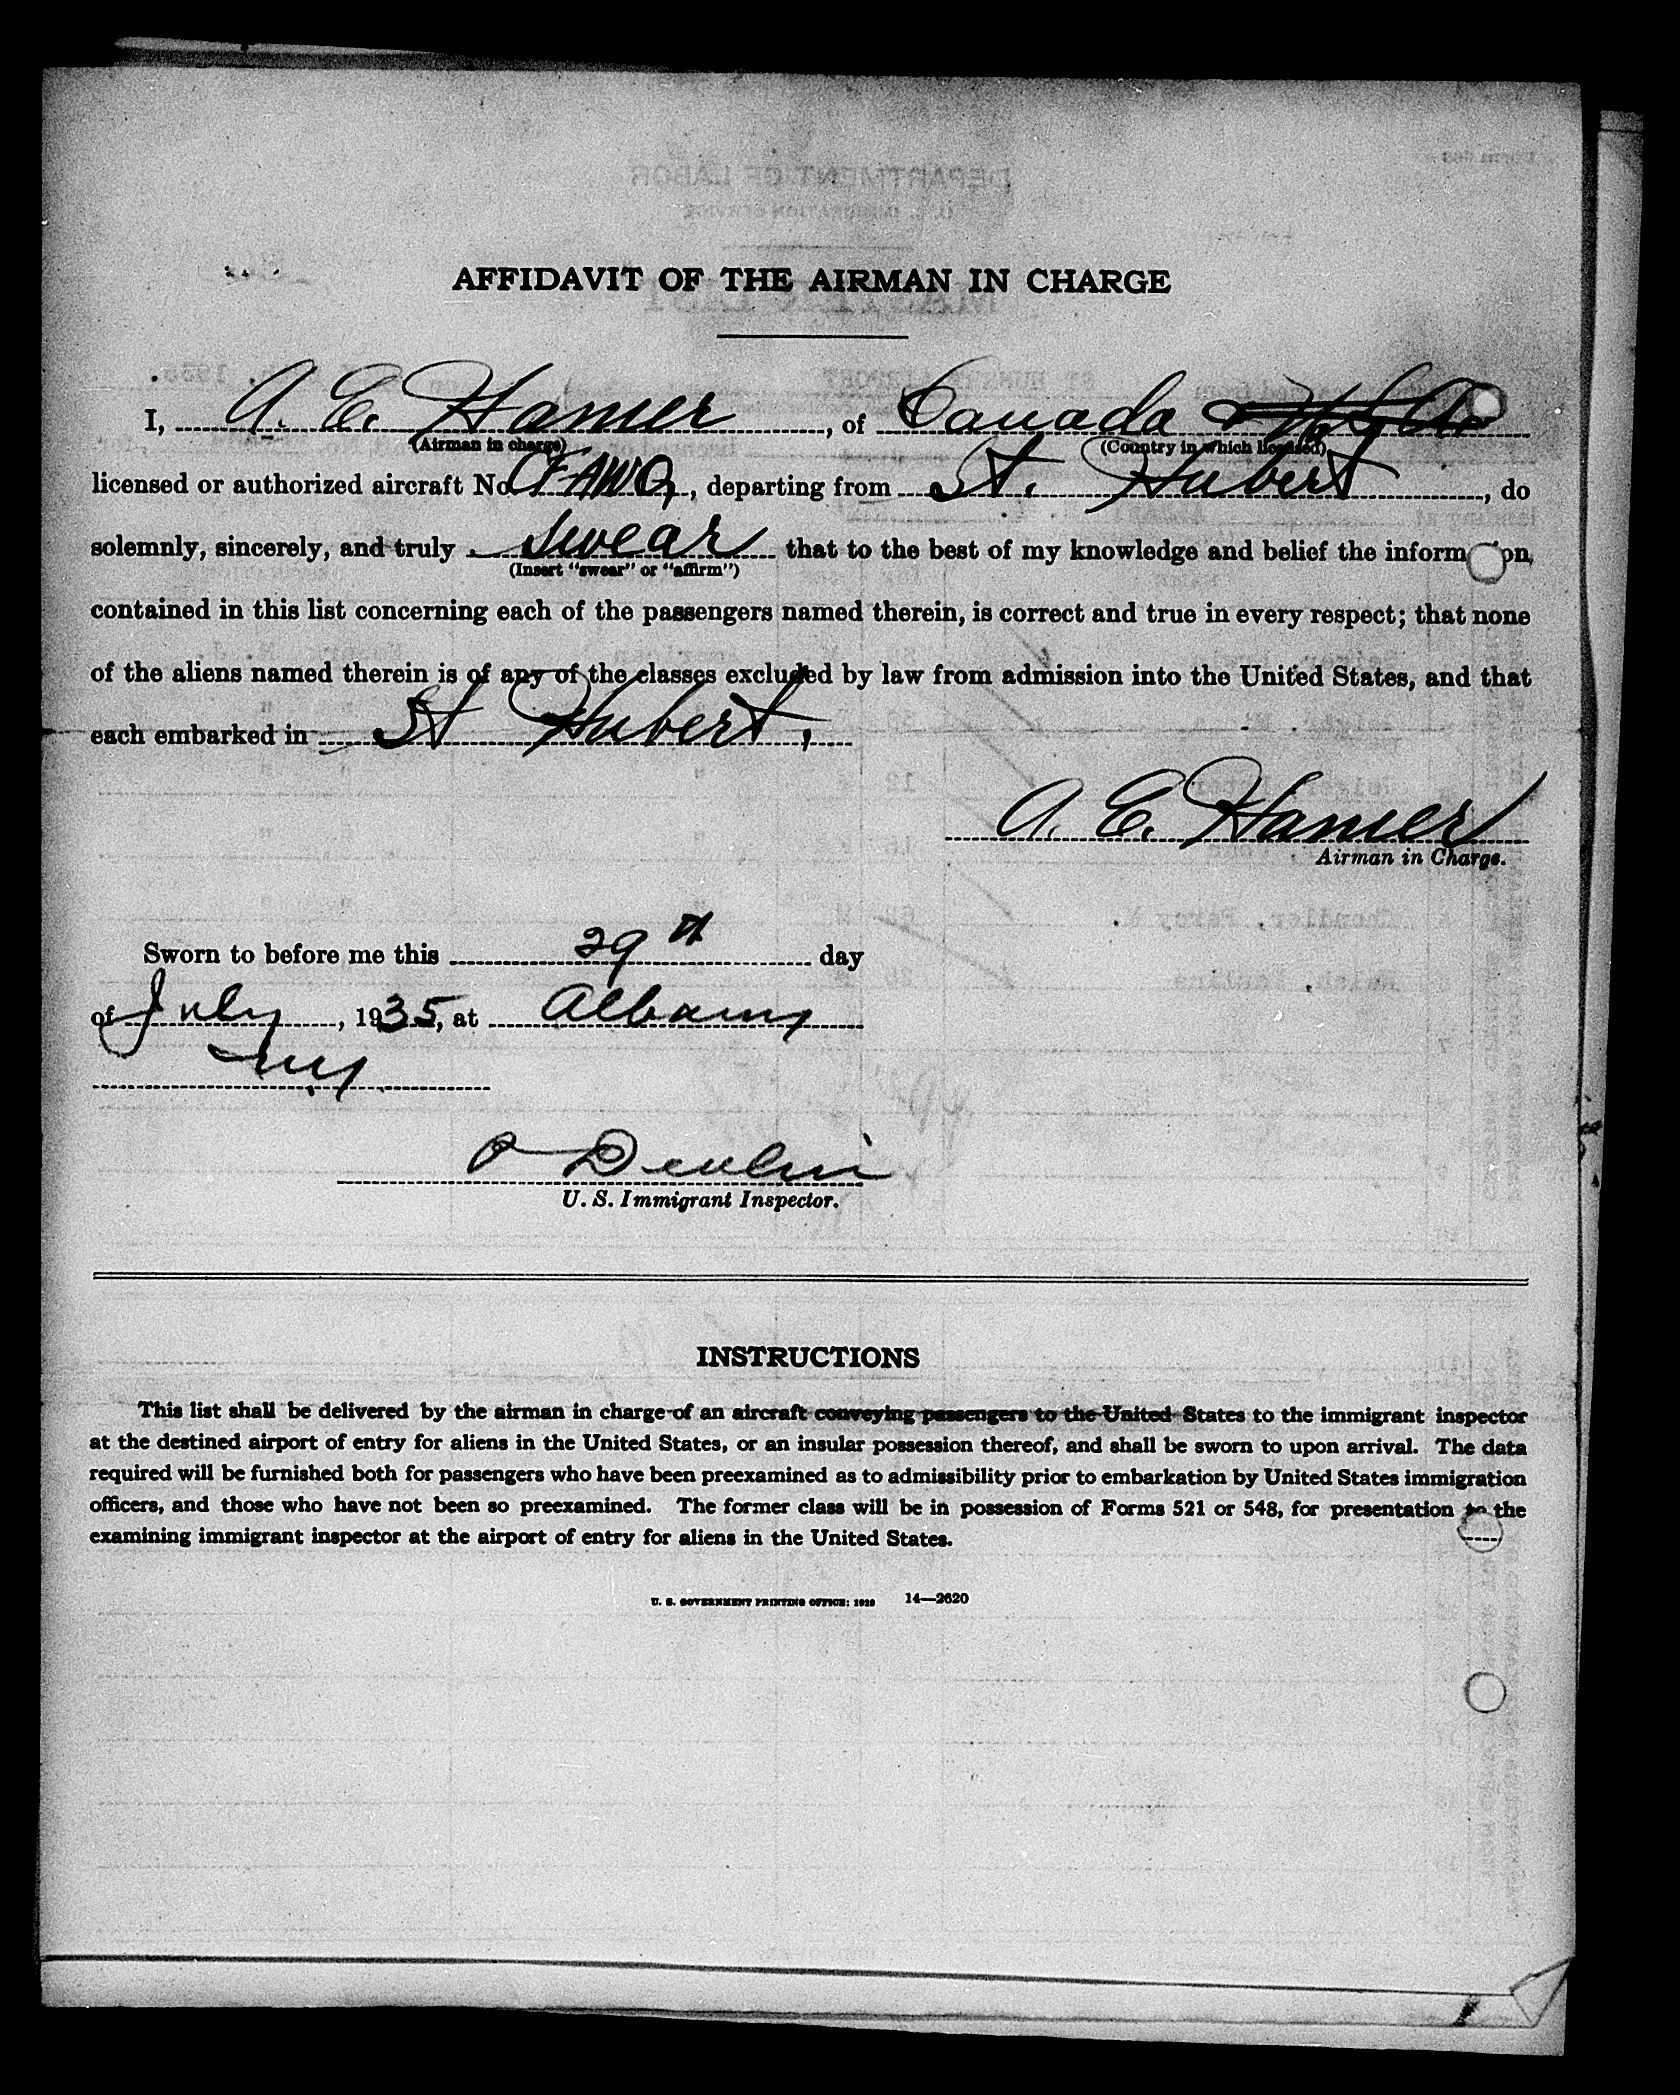 AFFIDAVIT OF THE AIRMAN IN CHARGE
I, A. E. Hamer, of Canada
(Airman in charge) (Country in which licensed)
licensed or authorized aircraft No. CFAWQ, departing from St. Hubert, do
solemnly, sincerely, and truly swear that to the best of my knowledge and belief the information,
(Insert "swear" or "affirm")
contained in this list concerning each of the passengers named therein, is correct and true in every respect; that none
of the aliens named therein is of any of the classes excluded by law from admission into the United States, and that
each embarked in St Hubert,
A. E. Hamer
Airman in Charge.
Sworn to before me this 29th day
of July, 1935, at Albany
NY
P Devlin
U. S. Immigrant Inspector.
INSTRUCTIONS
This list shall be delivered by the airman in charge of an aircraft conveying passengers to the United States to the immigrant inspector
at the destined airport of entry for aliens in the United States, or an insular possession thereof, and shall be sworn to upon arrival. The data
required will be furnished both for passengers who have been preexamined as to admissibility prior to embarkation by United States immigration
officers, and those who have not been so preexamined. The former class will be in possession of Forms 521 or 548, for presentation to the
examining immigrant inspector at the airport of entry for aliens in the United States.
U. S. GOVERNMENT PRINTING OFFICE: 1929 14—2620